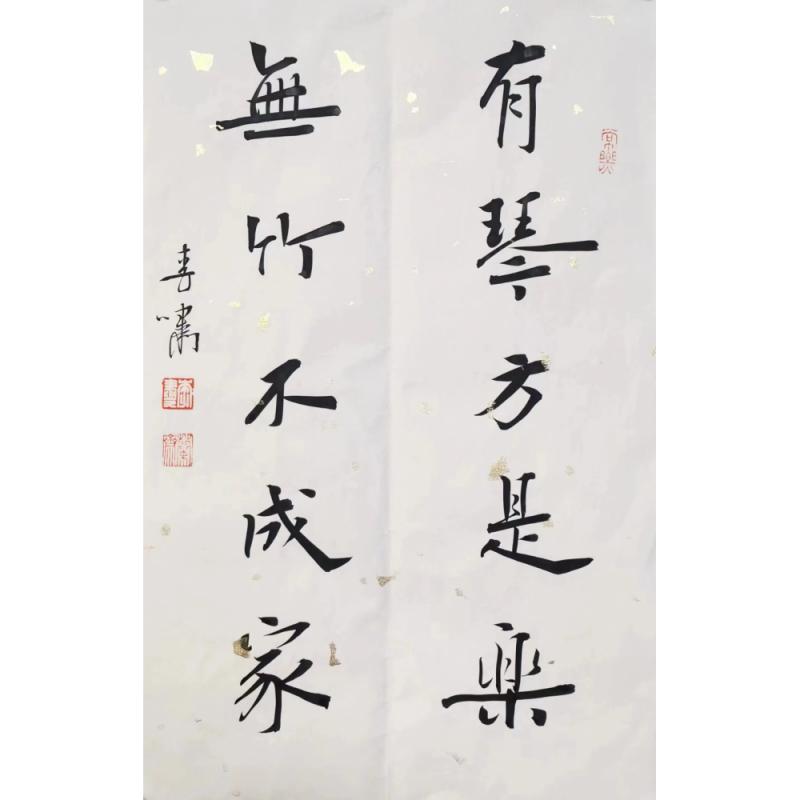 有琴方是樂
無竹不成家
嘯